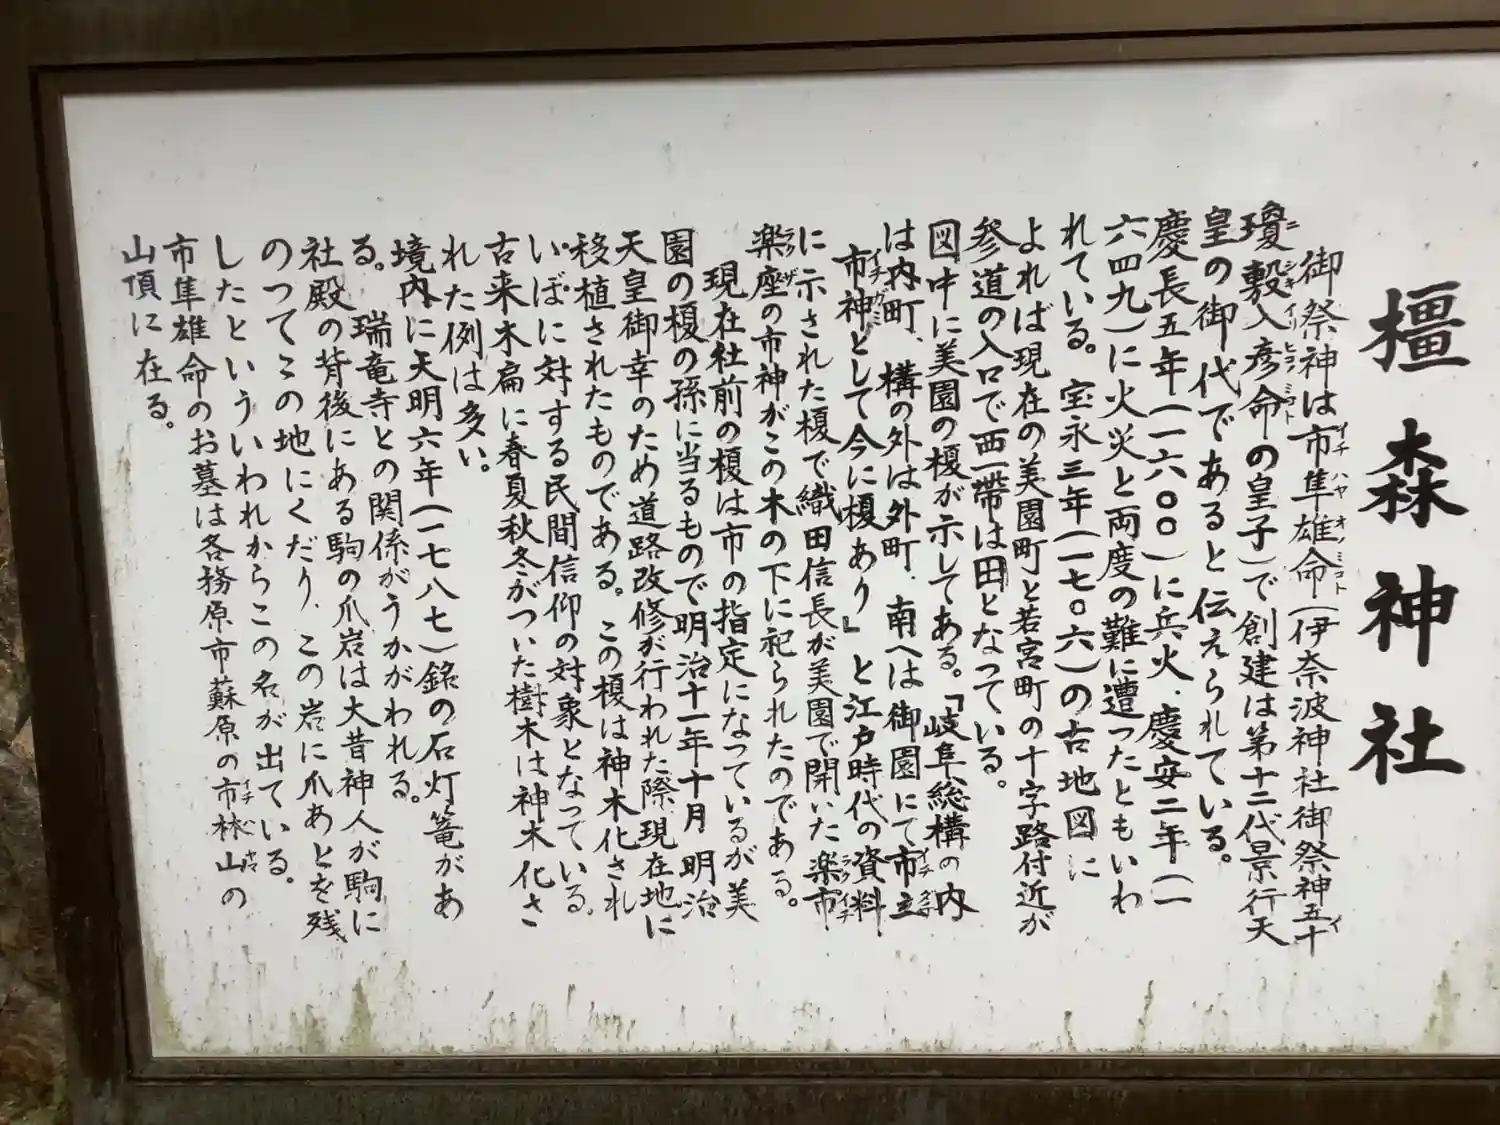 橿森神社
御祭神は市隼雄命(伊奈波神社御祭神五十
瓊敷入彦命の皇子)で創建は第十二代景行天
皇の御代であると伝えられている。
慶長五年(一六〇〇)に兵火、慶安二年(一
六四九)に火災と両度の難に遭ったともいわ
れている。宝永三年(一七〇六)の古地図に
よれば現在の美園町と若宮町の十字路付近が
参道の入口で西一帯は田となっている。
図中に美園の榎が示してある。「岐阜総構の内
は内町、構の外は外町、南へは御園にて市立
市神として今に榎あり』と江戸時代の資料
に示された榎で織田信長が美園で開いた楽市
楽座の市神がこの木の下に祀られたのである。
現在社前の榎は市の指定になっているが美
園の榎の孫に当るもので明治十一年十月明治
天皇御幸のため道路改修が行われた際現在地に
移植されたものである。この榎は神木化され
いぼに対する民間信仰の対象となっている、
古来木扁に春夏秋冬がついた樹木は神木化さ
れた例は多い。
境内に天明六年(一七八七)銘の石灯篭があ
る。瑞竜寺との関係がうかがわれる。
社殿の背後にある駒の爪岩は大昔神人が駒に
のってこの地にくだり、この岩に爪あとを残
したといういわれからこの名が出ている。
市隼雄命のお墓は各務原市蘇原の市林山の
山頂に在る。